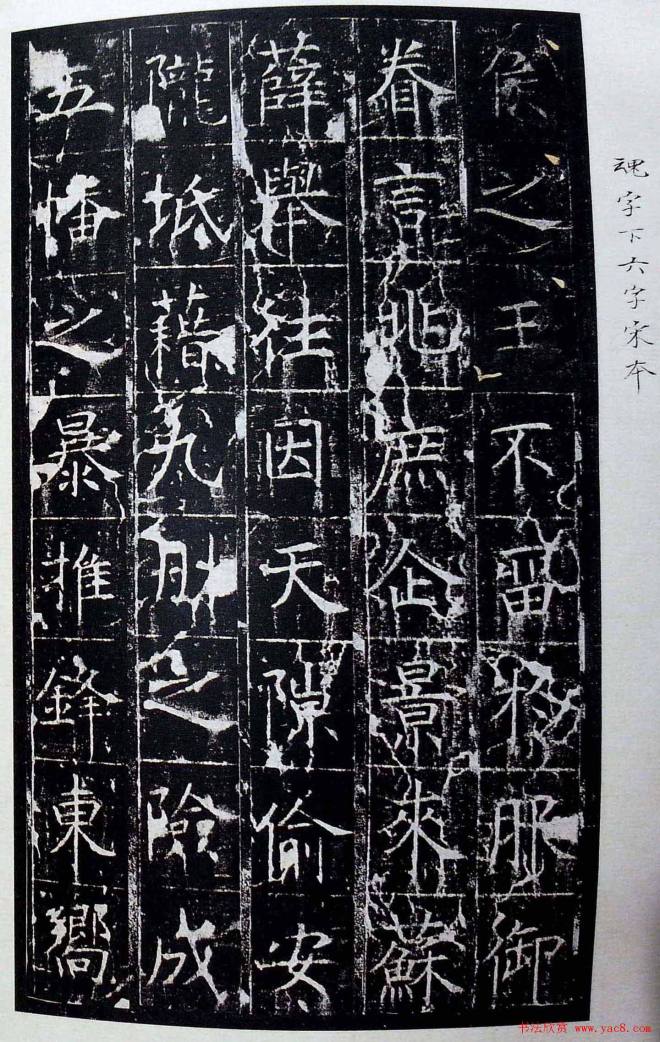 魂字下六字宋本
侯之王不留服御
眷言兆庶企景來蘇
薛舉往因天隙偷安
隴坻藉九之險成
五幡之暴推鋒東嚮
书法欣赏 www.yac8.com